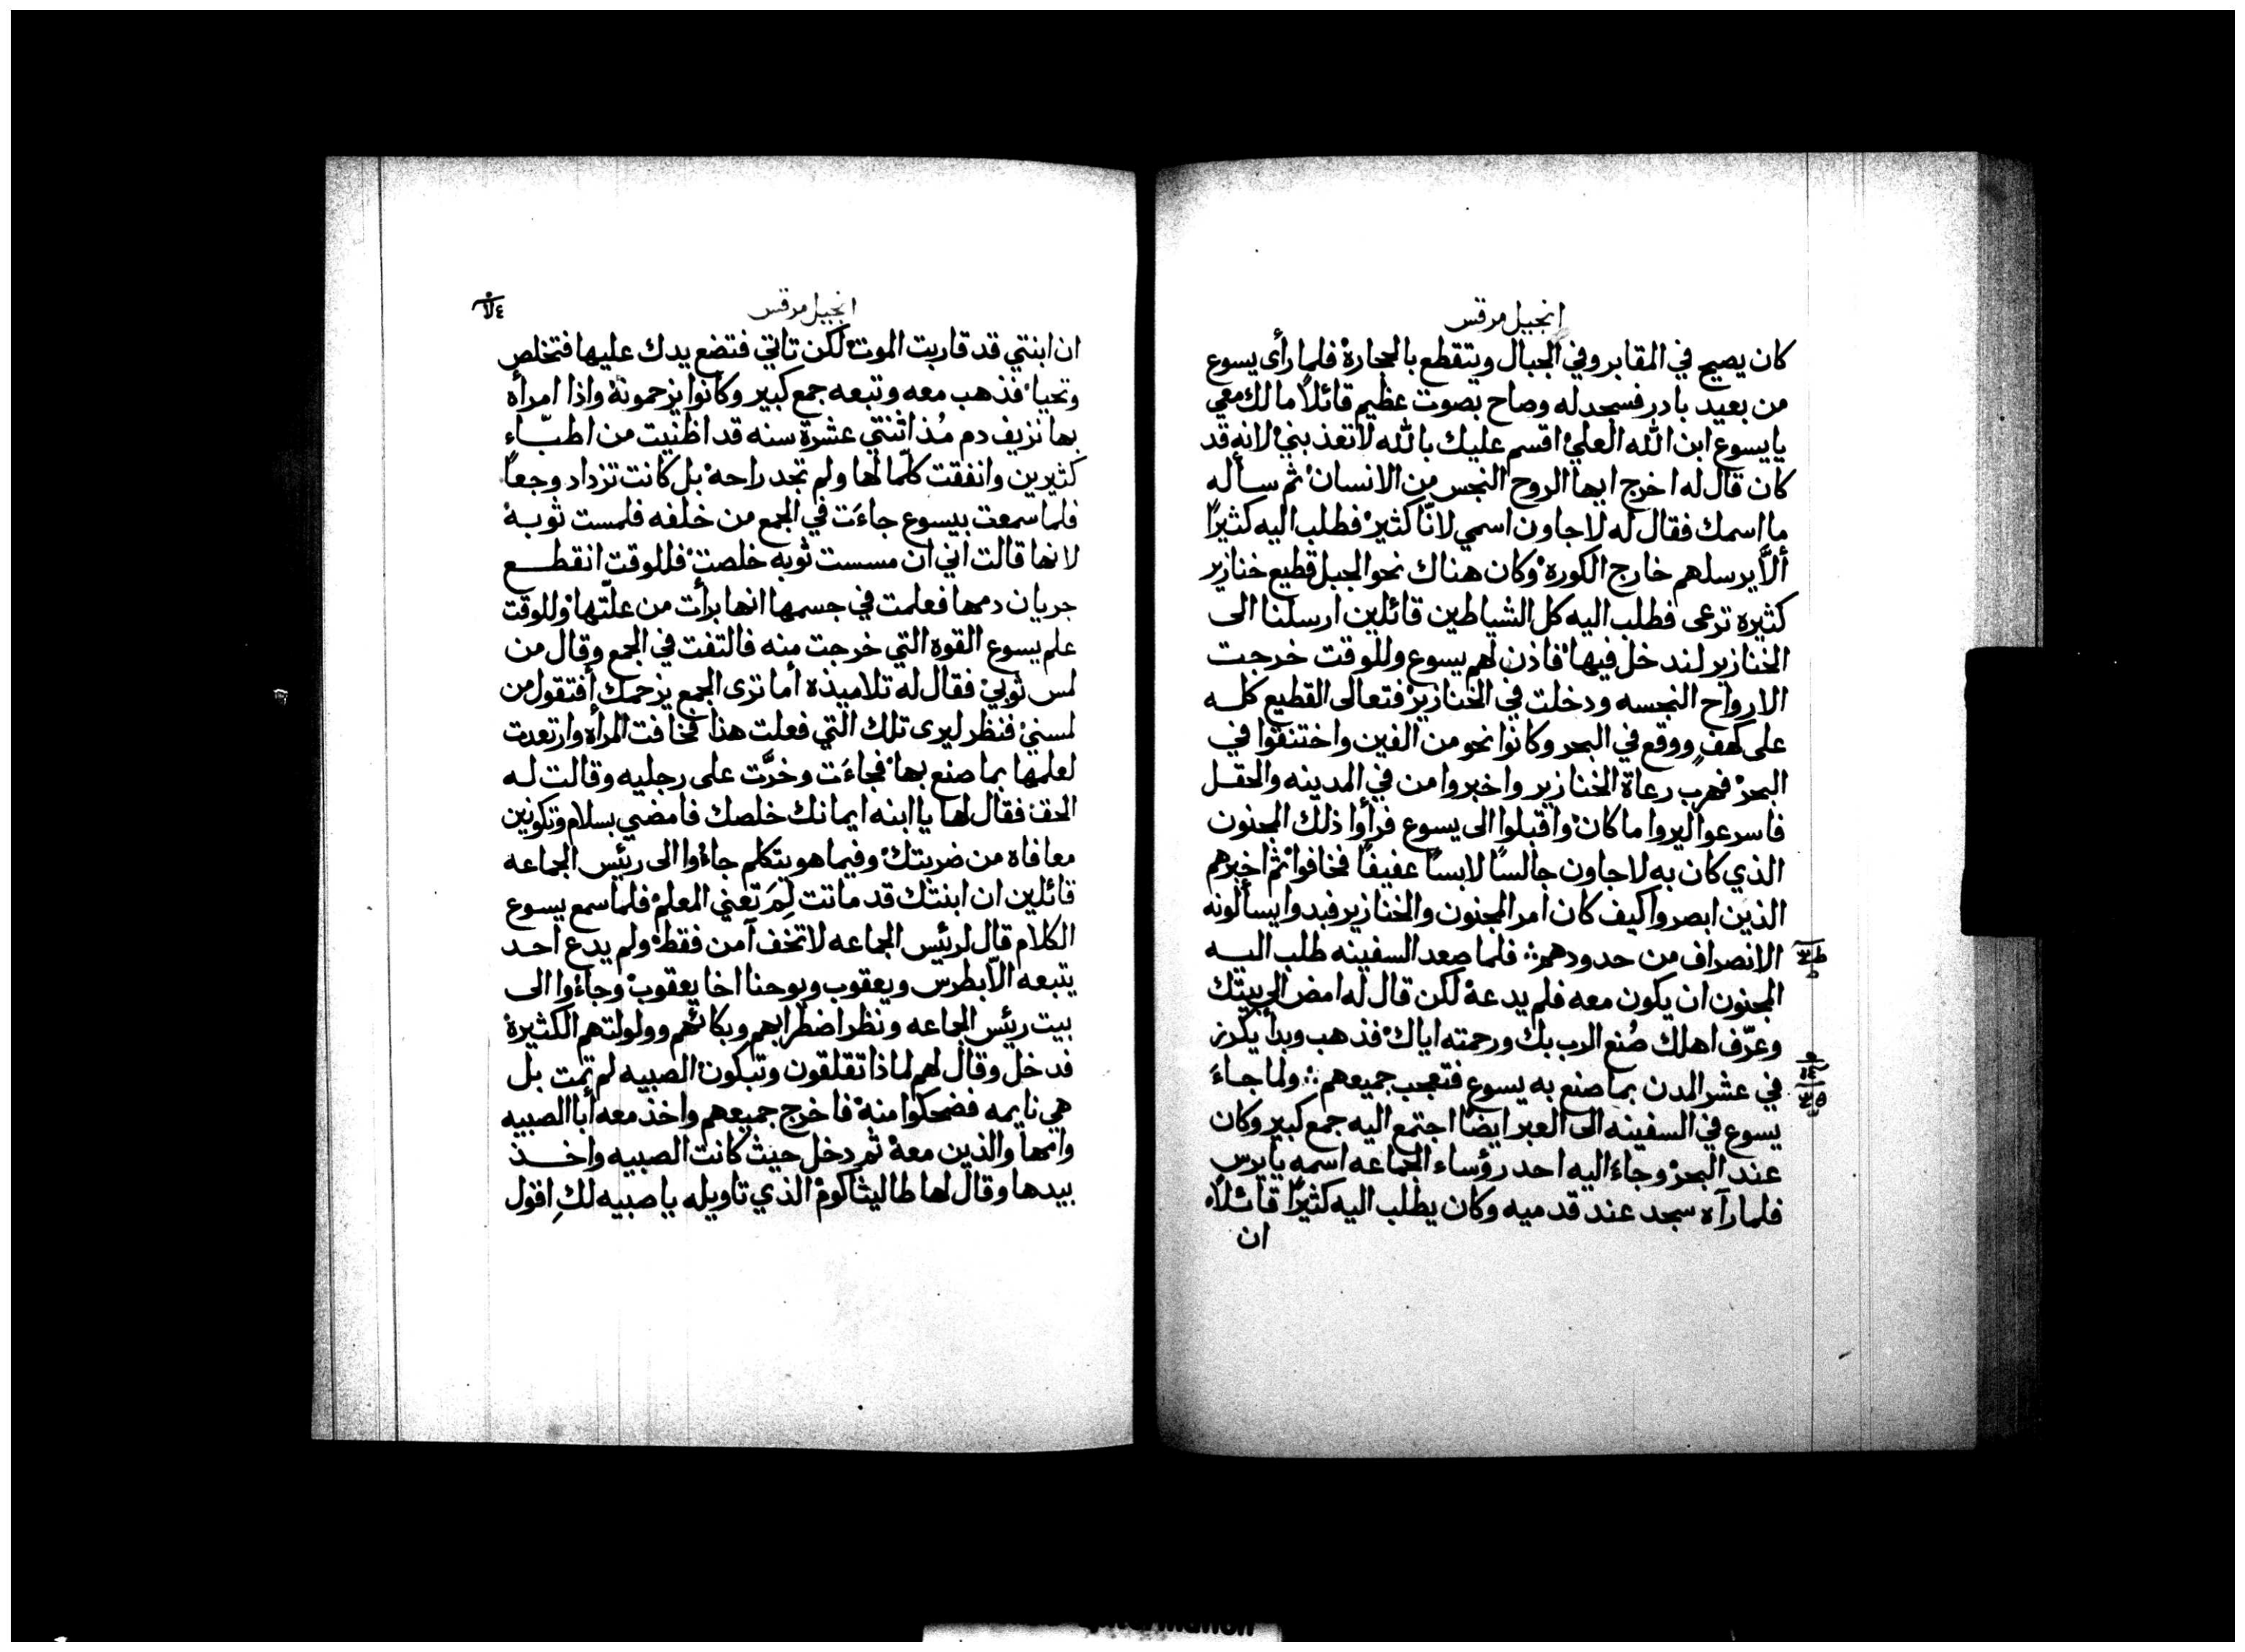 انجيل مرقس
كان يصيح في المقابر وفي الجبال ويتقطع بالحجارة فلما رأى يسوع
من بعيد بادر فسجد له وصاح بصوت عظيم قائلاً ما لك معي
يا يسوع ابن الله العلي اقسم عليك بالله لا تعذبني لانه قد
كان قال له اخرج ايها الروح النجس من الانسان ثم سأله
ما اسمك فقال له لاجاون اسمي لانّا كثير فطلب اليه كثيراً
ألاّ يرسلهم خارج الكورة وكان هناك نحو الجبل قطيع خنازير
كثيره ترعى فطلب اليه كل الشياطين قائلين ارسلنا الى
الخنازير لندخل فيها فاذن لهم يسوع وللوقت خرجت
الارواح النجسه ودخلت في الخنازير فتعالى القطيع كله
على كهفٍ ووقع في البحر وكانوا نحو من الفين واختنقوا في
البحر فهرب رعاة الخنازير واخبروا من في المدينه والحقل
فاسرعوا ليروا ما كان واقبلوا الى يسوع فرأوا ذلك المجنون
الذي كان به لاجاون جالسًا لابسًا عفيفًا فخافوا ثم اخبرهم
الذين ابصروا كيف كان امر المجنون والخنازير فبدوا يسألونه
الانصراف من حدودهم فلما صعد السفينه طلب اليه
المجنون ان يكون معه فلم يدعه لكن قال له امض الى بيتك
وعرّف اهلك صُنع الرب بك ورحمته اياك فذهب وبدأ يكرز
في عشر المدن بما صنع به يسوع فتعجب جميعهم ولما جاءَ
يسوع في السفينه الى العبر ايضًا اجتمع اليه جمع كبير وكان
عند البحر وجاء اليه احد رؤساء الجماعه اسمه يايرس
فلما رآه سجد عند قدميه وكان يطلب اليه كثيراً قائلاً
ان
انجيل مرقس
ان ابنتي قد قاربت الموت لكن تاتي فتضع يدك عليها فتخلص
وتحيا فذهب معه وتبعه جمع كبير وكانوا يزحمونه واذا امرأه
بها نزيف دم مُذ اثنتي عشرة سنه قد اظنيت من اطبّاء
كثيرين وانفقت كلّما لها ولم تجد راحه بل كانت تزداد وجعاً
فلما سمعت بيسوع جاءَت في الجمع من خلفه فلمست ثوبه
لانها قالت اني ان مسست ثوبه خلصت فللوقت انقطع
جريان دمها فعلمت في جسمها انها برأت من علّتها وللوقت
علم يسوع القوه التي خرجت منه فالتفت في الجمع وقال من
لمس ثوبي فقال له تلاميذه أما ترى الجمع يزحمك أفتقول من
لمسني فنظر ليرى تلك التي فعلت هذا فخافت المرأه وارتعدت
لعلمها بما صنع بها فجاءَت وخرَّت على رجليه وقالت له
الحق فقال لها يا ابنه ايمانك خلصك فامضي بسلام وتكونين
معافاه من ضربتك وفيما هو يتكلم جاءوا الى رئيس الجماعه
قائلين ان ابنتك قد ماتت لِمَ تعني المعلم فلما سمع يسوع
الكلام قال لرئيس الجماعه لا تخف آمن فقط ولم يدع احد
يتبعه الاّ بطرس ويعقوب ويوحنا اخا يعقوب وجاءوا الى
بيت رئيس الجماعه ونظر اضطرابهم وبكائهم وولولتهم الكثيرة
فدخل وقال لهم لماذا تقلقون وتبكون الصبيه لم تمت بل
هي نايمه فضحكوا منه فاخرج جميعهم واخذ معه أبا الصبيه
وامها والذين معه ثم دخل حيث كانت الصبيه واخذ
بيدها وقال لها طاليثا كوم الذي تاويله يا صبيه لكِ اقول